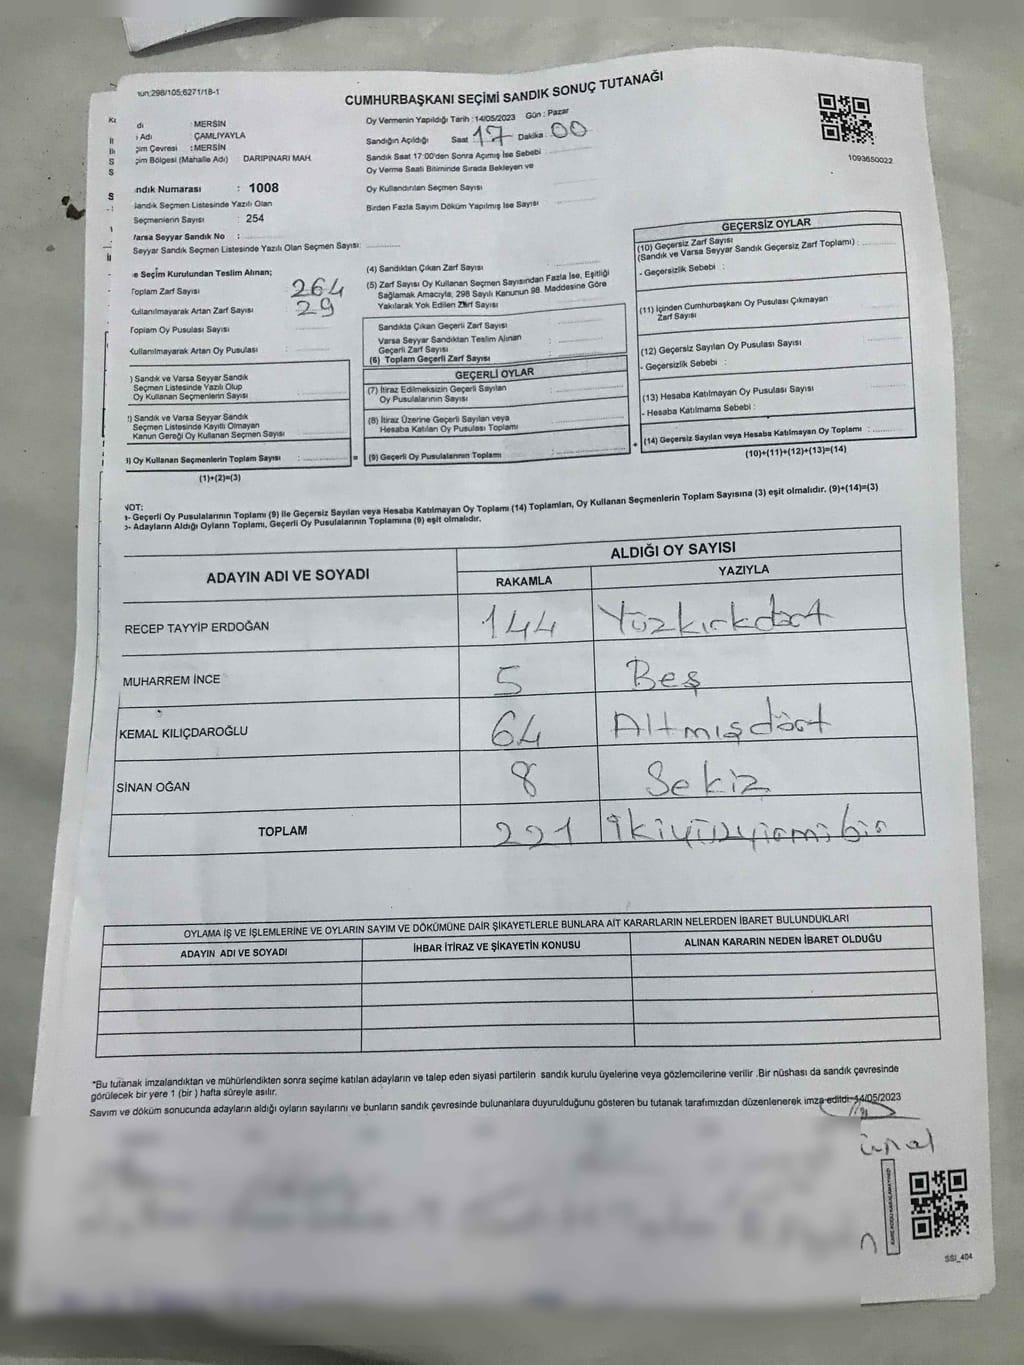 CUMHURBAŞKANI SEÇİMİ SANDIK SONUÇ TUTANAĞI
: MERSİN
Adı : ÇAMLIYAYLA
Çevresi : MERSİN
Bölgesi (Mahalle Adı) DARIPINARI MAH.
Numarası : 1008
Sandık Seçmen Listesinde Yazılı Olan
Seçmenlerin Sayısı : 254
Varsa Seyyar Sandık No :
Seyyar Sandık Seçmen Listesinde Yazılı Olan Seçmen Sayısı:
Oy Vermenin Yapıldığı Tarih : 14/05/2023 Gün : Pazar
Sandığın Açıldığı Saat 17 Dakika 00
Sandık Saat 17:00'den Sonra Açımış İse Sebebi :
Oy Verme Saati Bitiminde Sırada Bekleyen ve
Oy Kullandırılan Seçmen Sayısı :
Birden Fazla Sayım Döküm Yapılmış İse Sayısı :
1093650022
Seçim Kurulundan Teslim Alınan;
Toplam Zarf Sayısı : 264
Kullanılmayarak Artan Zarf Sayısı : 29
Toplam Oy Pusulası Sayısı :
Kullanılmayarak Artan Oy Pusulası :
) Sandık ve Varsa Seyyar Sandık
Seçmen Listesinde Yazılı Olup
Oy Kullanan Seçmenlerin Sayısı :
) Sandık ve Varsa Seyyar Sandık
Seçmen Listesinde Kayıtlı Olmayan
Kanun Gereği Oy Kullanan Seçmen Sayısı :
) Oy Kullanan Seçmenlerin Toplam Sayısı :
(1)+(2)=(3)
(4) Sandıktan Çıkan Zarf Sayısı :
(5) Zarf Sayısı Oy Kullanan Seçmen Sayısından Fazla İse, Eşitliği
Sağlamak Amacıyla, 298 Sayılı Kanunun 98. Maddesine Göre
Yakılarak Yok Edilen Zarf Sayısı :
Sandıkta Çıkan Geçerli Zarf Sayısı :
Varsa Seyyar Sandıktan Teslim Alınan
Geçerli Zarf Sayısı :
(6) Toplam Geçerli Zarf Sayısı :
GEÇERLİ OYLAR
(7) İtiraz Edilmeksizin Geçerli Sayılan
Oy Pusulalarının Sayısı :
(8) İtiraz Üzerine Geçerli Sayılan veya
Hesaba Katılan Oy Pusulası Toplamı :
(9) Geçerli Oy Pusulalarının Toplamı :
GEÇERSİZ OYLAR
(10) Geçersiz Zarf Sayısı
(Sandık ve Varsa Seyyar Sandık Geçersiz Zarf Toplamı) :
- Geçersizlik Sebebi :
(11) İçinden Cumhurbaşkanı Oy Pusulası Çıkmayan
Zarf Sayısı :
(12) Geçersiz Sayılan Oy Pusulası Sayısı :
- Geçersizlik Sebebi :
(13) Hesaba Katılmayan Oy Pusulası Sayısı :
- Hesaba Katılmama Sebebi :
(14) Geçersiz Sayılan veya Hesaba Katılmayan Oy Toplamı :
(10)+(11)+(12)+(13)=(14)
NOT:
- Geçerli Oy Pusulalarının Toplamı (9) ile Geçersiz Sayılan veya Hesaba Katılmayan Oy Toplamı (14) Toplamları, Oy Kullanan Seçmenlerin Toplam Sayısına (3) eşit olmalıdır. (9)+(14)=(3)
- Adayların Aldığı Oyların Toplamı, Geçerli Oy Pusulalarının Toplamına (9) eşit olmalıdır.
ADAYIN ADI VE SOYADI ALDIĞI OY SAYISI
RAKAMLA YAZIYLA
RECEP TAYYİP ERDOĞAN 144 Yüzkırkdört
MUHARREM İNCE 5 Beş
KEMAL KILIÇDAROĞLU 64 Altmışdört
SİNAN OĞAN 8 Sekiz
TOPLAM 221 İkiyüzyirmibir
OYLAMA İŞ VE İŞLEMLERİNE VE OYLARIN SAYIM VE DÖKÜMÜNE DAİR ŞİKAYETLERLE BUNLARA AİT KARARLARIN NELERDEN İBARET BULUNDUKLARI
ADAYIN ADI VE SOYADI İHBAR İTİRAZ VE ŞİKAYETİN KONUSU ALINAN KARARIN NEDEN İBARET OLDUĞU
*Bu tutanak imzalandıktan ve mühürlendikten sonra seçime katılan adayların ve talep eden siyasi partilerin sandık kurulu üyelerine veya gözlemcilerine verilir .Bir nüshası da sandık çevresinde
görülecek bir yere 1 (bir ) hafta süreyle asılır.
Sayım ve döküm sonucunda adayların aldığı oyların sayılarını ve bunların sandık çevresinde bulunanlara duyurulduğunu gösteren bu tutanak tarafımızdan düzenlenerek imza edildi. 14/05/2023
ünal
SSI_404